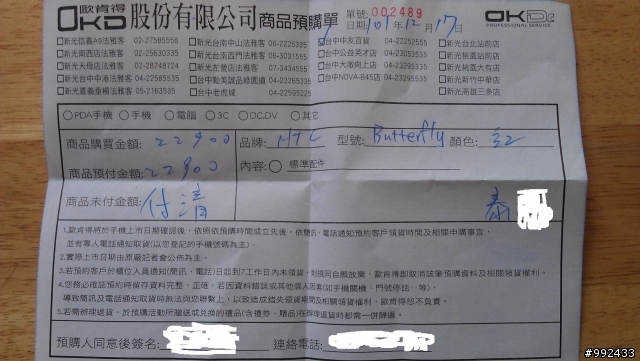 OKD 歐肯得 股份有限公司商品預購單 單號:002489 OKDr.
PROFESSIONAL SERVICE
日期 101年12月17日
□新光信義A9法雅客 02-27585558 □新光台南中山法雅客 06-2225335 台中中友百貨 04-22252555 □新光台北站前店
□新光南西店法雅客 02-25630335 □新光台南西門法雅客 06-3031555 □台中公益英才店 04-23055335 □新光桃園站前店
□新光天母店法雅客 02-28748724 □新光左營店法雅客 07-3434555 □台中大敢向上店 04-23220335 □新光桃園大有店
□新光台中中港法雅客 04-22585535 □台中勤美誠品綠園道 04-23265335 □台中NOVA-B45店 04-23295335 □新光新竹中華店
□新光嘉義垂楊法雅客 05-2163535 □台中老虎城 04-22595225 □新光高雄三多店
○PDA手機 ○手機 ○電腦 ○3C ○DC.DV ○其它
商品購買金額: 22900 品牌: HTC 型號: Butterfly 顏色: 紅
商品預付金額: 22900 內容: ○ 標準配件
商品未付金額: 付清
1.歐肯得將於手機上市日期確認後,依照依預購時間成立先後,依簡訊、電話通知預約客戶領貨時間及相關申購事宜,
並有專人電話通知取貨(以您登記的手機號碼為主)。
2.實際上市日期由原廠記者會公佈為主。
3.若預約客戶於櫃位人員通知(簡訊、電話)日起到7工作日內未領貨,則視同自願放棄,歐肯得即取消該筆預購資料及相關領貨權利。
4.您務必確認預約時留存資料完整、正確,若因資料錯誤或其他個人因素(如手機關機、門號停話…等),
導致簡訊及電話通知取貨時無法與您聯繫上,以致造成錯失領貨期間及相關領貨權利,歐肯得恕不負責。
5.若需辦理退貨,於預購活動所贈送或兌換的禮品(含禮券、贈品)在辦理退貨時都需一併歸還。
預購人同意後簽名: 連絡電話:
#992433